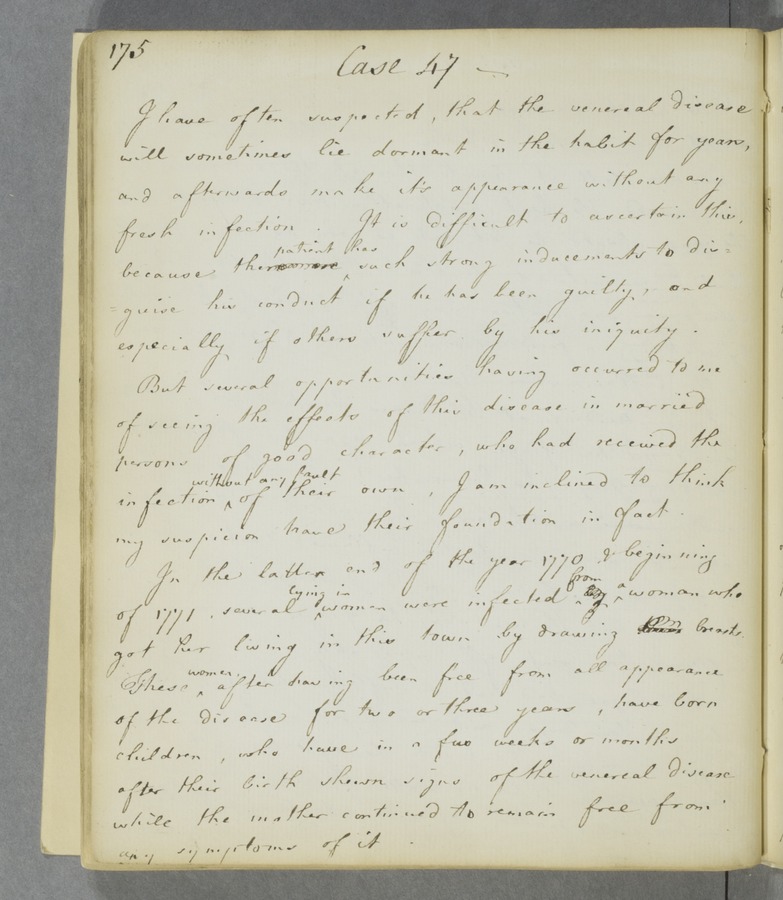 175
Case 47
I have often suspected, that the venereal disease
will sometimes lie dormant in the habit for years,
and afterwards make it's appearance without any
fresh infection. It is difficult to ascertain this,
patient has
because the such strong inducements to dis=
=guise his conduct if he has been guilty, and
especially if others suffer by his iniquity.
But several opportunities having occurred to me
of seeing the effects of this disease in married
persons of good character, who had received the
without any fault
infection of their own, I am inclined to think
my suspicion have their foundation in fact.
In the latter end of the year 1770 & beginning
lying in from
of 1771, several women were infected by a woman who
got her living in this town by drawing breasts.
women
These after having been free from all appearance
of the disease for two or three years, have born
children, who have in a few weeks or months
after their birth shewn signs of the venereal disease
while the mother continued to remain free from
any symptoms of it.